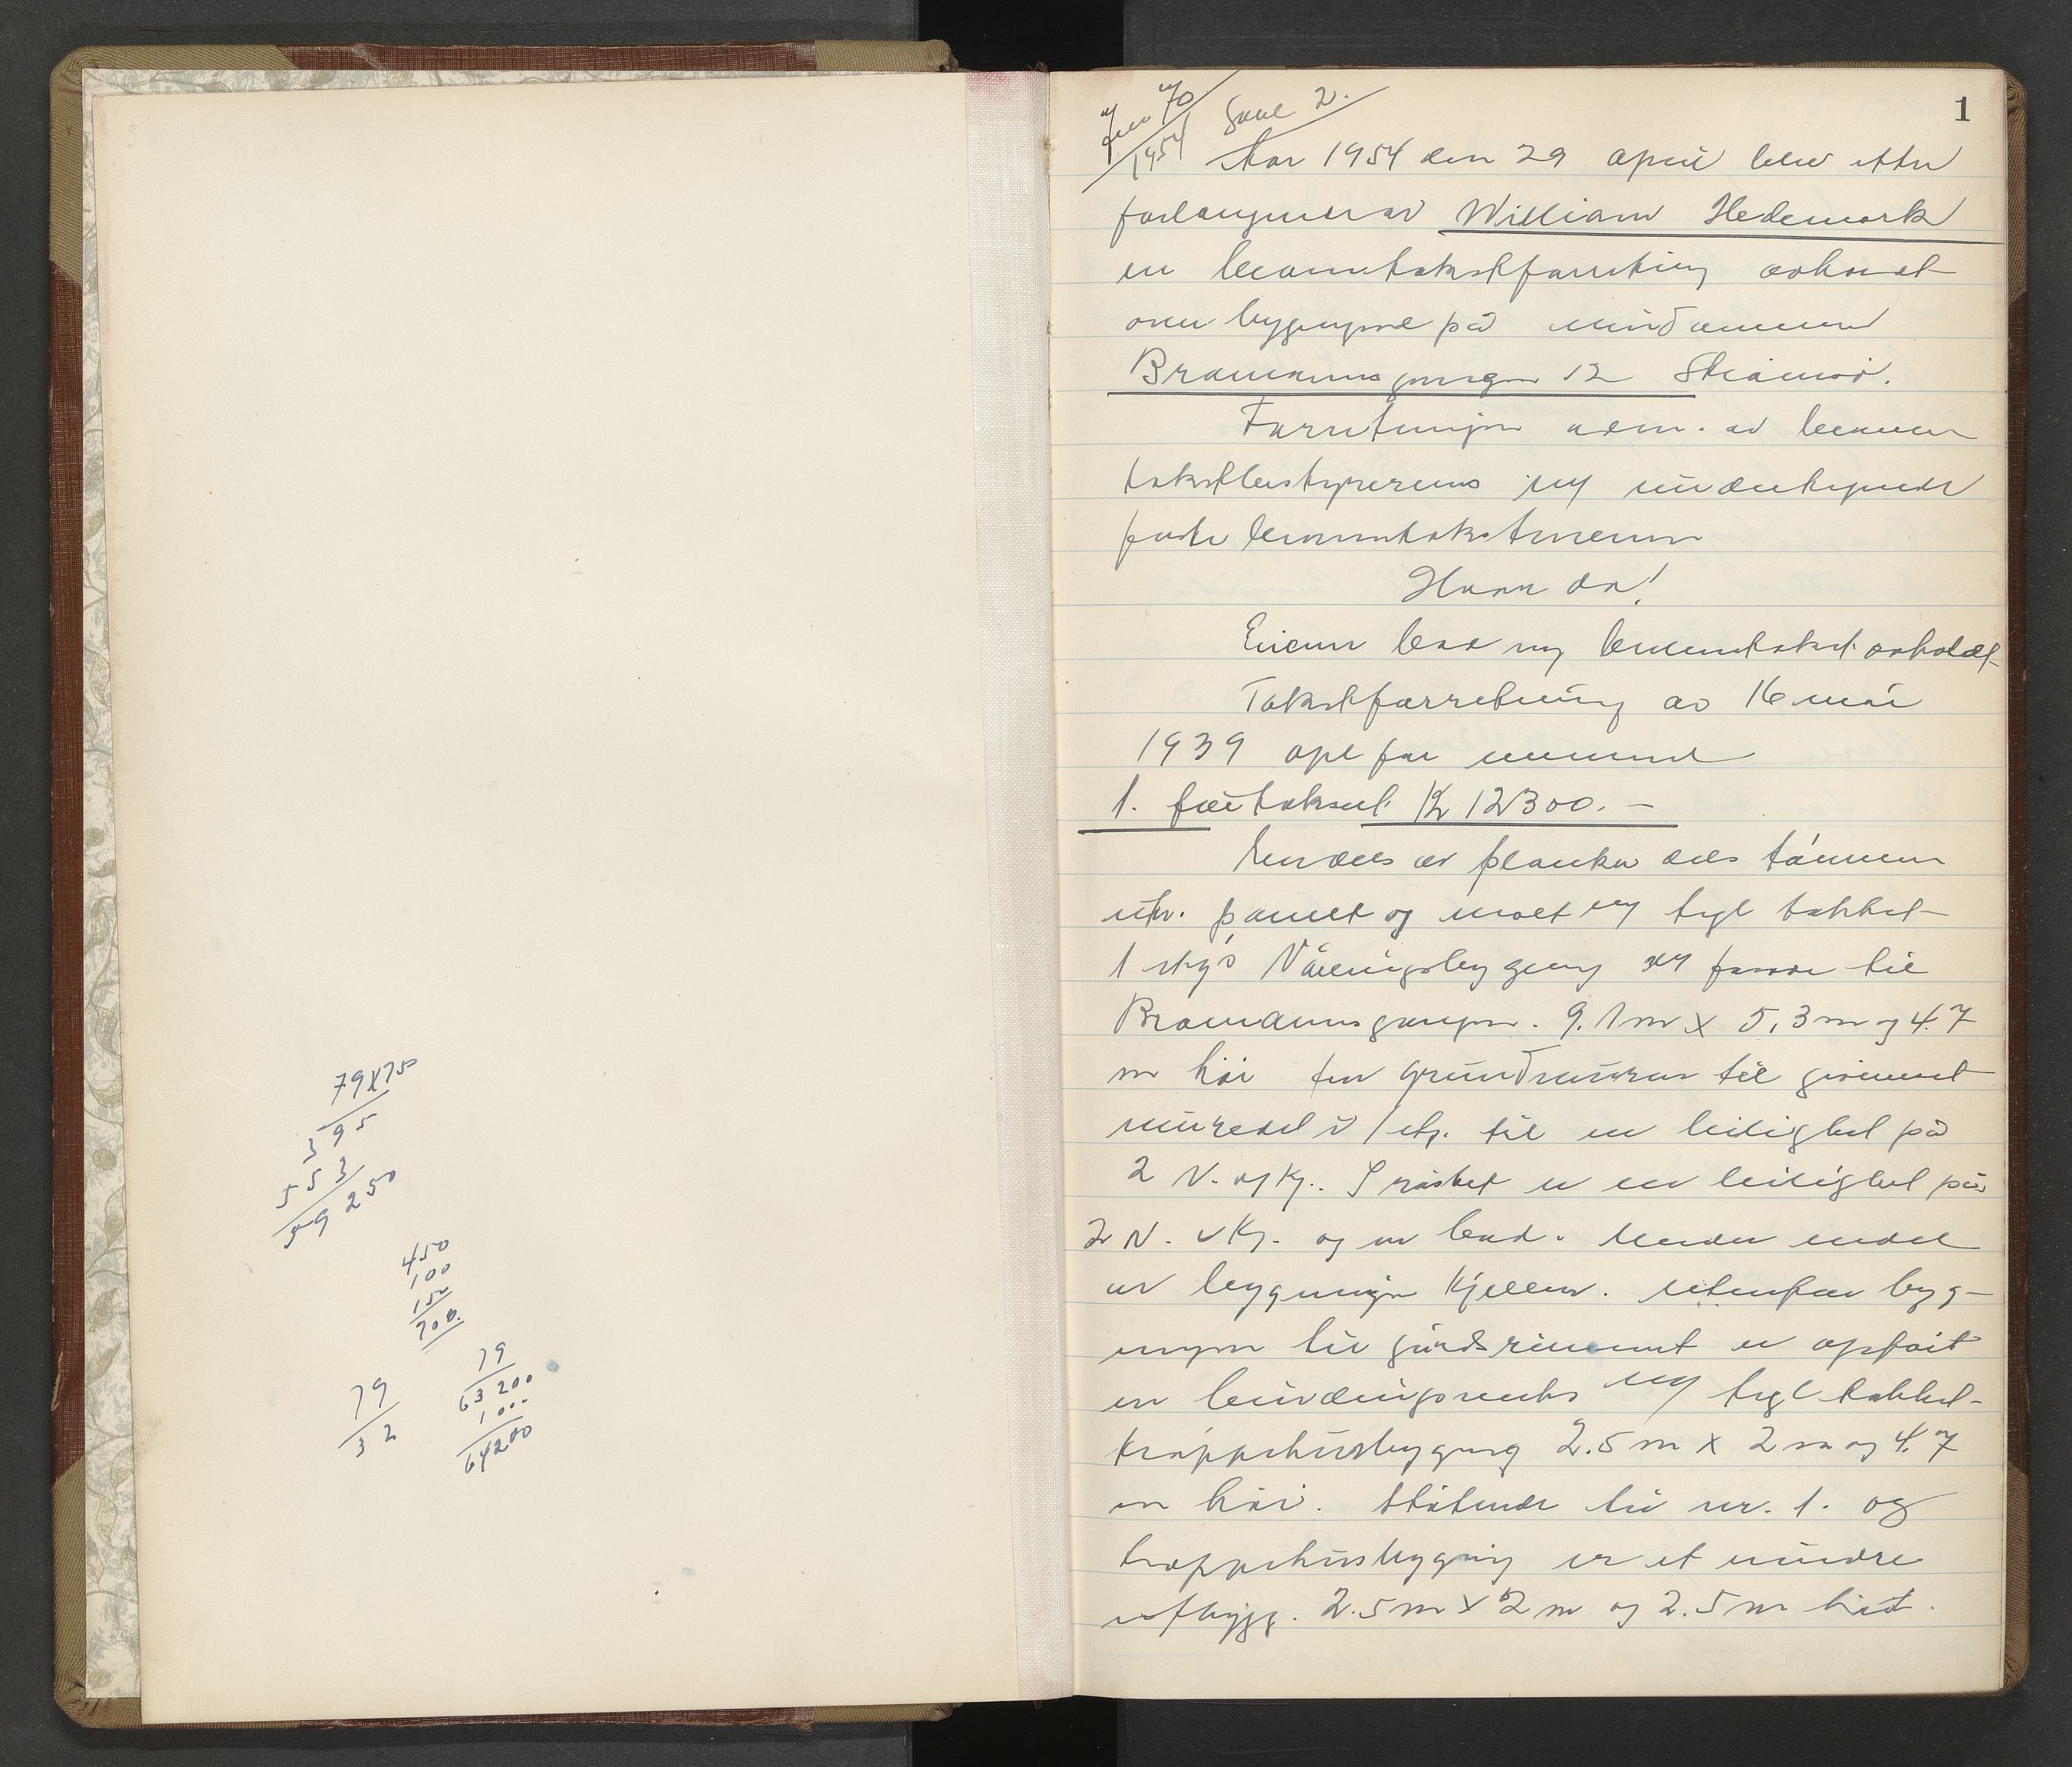 79x75
395
553
59250
450
100
150
700.
79
63200
1000
64200
79
32
1
70
1954
Sak 2.
Aar 1954 den 29 april blev etter
forlangende av William Hedemark
en branntakstforretning avholdt
over bygingene på eiendommen
Brømansgangen 12 Strømsø.
Forretningen adm. av brann
takstbestyreren og undertegnede
faste branntakstmenn
Hvor da!
Eieren bad ny branntakst avholdt
Takstforretning av 16 mai
1939 opl for nummer
1. før taksert Kr 12300.-
En dels av planker dels tømmer
utv. panelt og malt og tegl takket
1 etgs Våningsbygging med fasade til
Bromannsgangen. 9.1 m x 5,3 m og 4.7
m høi fra grundmuren til gesimset
innredet i 1 etg. til en leilighet på
2 V. og Kj. I røstet er en leilighet på
2 V. & Kj. og en bad. Under endel
av bygningen Kjeller. Utenfor byg-
ningen til gårdsrummet er opført
en bindingsverks og tegl takket
trappehusbygging 2.5 m x 2 m og 4.7
m høi. Støtende til nr. 1. og
trappehusbygging er et mindre
utbygg. 2.5 m x 2 m og 2.5 m høit.